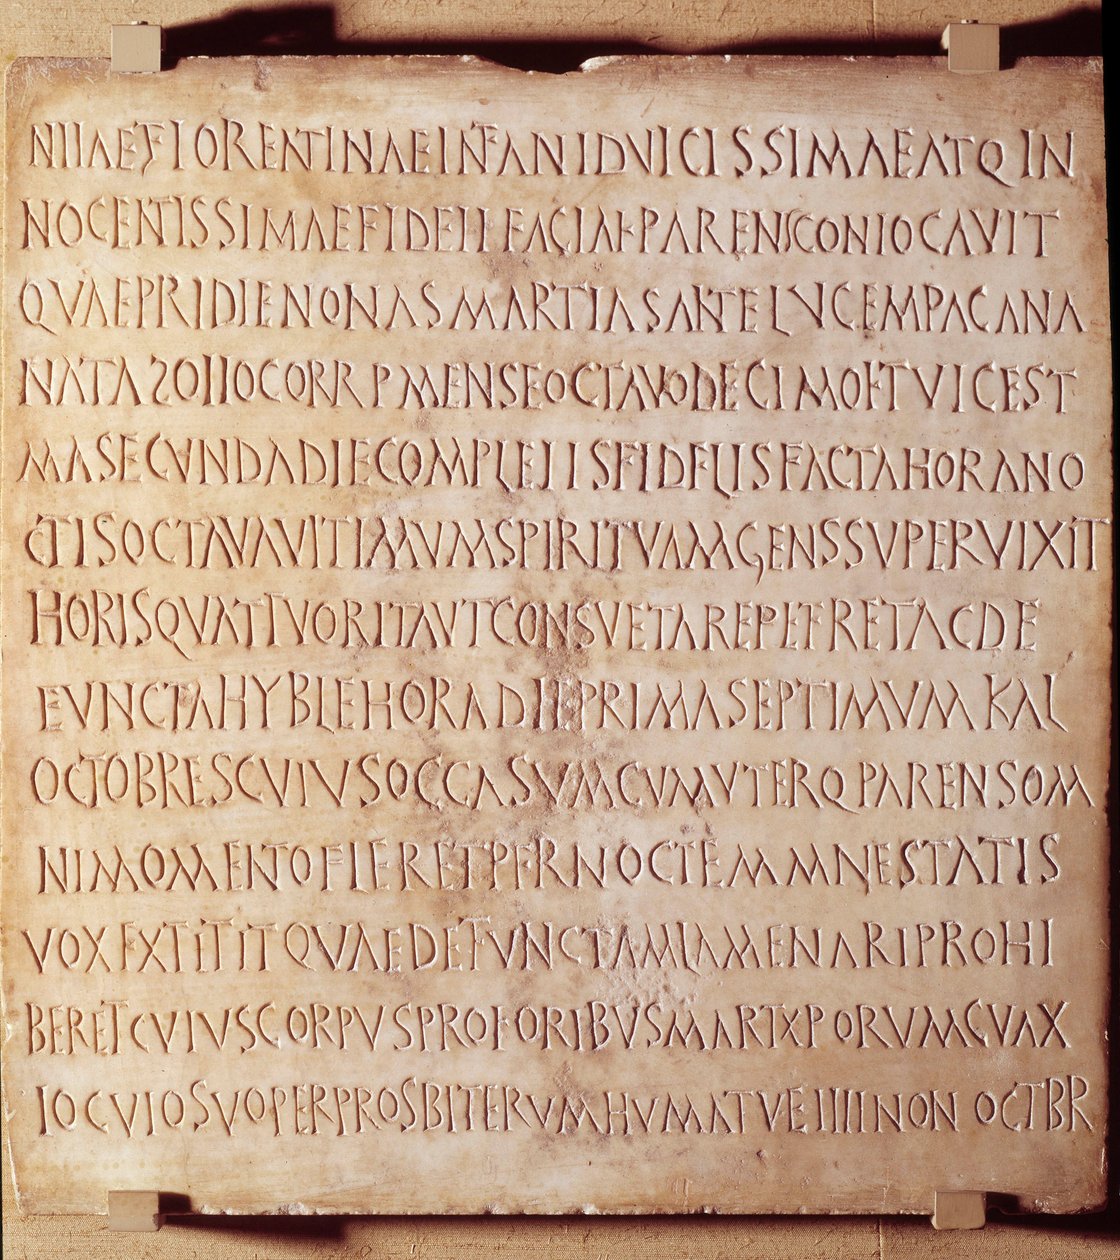 NIIAEFIORENTINAEINFANIDVICISSIMAEATQIN
NOCENTISSIMAEFIDEIIFACIAEPARENSCONIOCAVIT
QVAEPRIDIENONASMARTIASANTELVCEMPACANA
NATAZOIIOCORRPMENSEOCTAVODECIMOETVICEST
MASECVNDADIECOMPLEIISFIDELISFACTAHORANO
CTISOCTAVAVITIMVMSPIRITVAMGENSSVPERVIXIT
HORISQVATIVORITAVTCONSVETAREPETFRETACDE
FVNCTAHYBLEHORADIEPRIMASEPTIMVMKAL
OCTOBRESCVIVSOCCASVMCVMVTERQPARENSOM
NIMOMENTOFIERETPERNOCTEMMNESTATIS
VOXEXTITITQVAEDEFVNCTAMLAMENARIPROHI
BERETCVIVSCORPVSPROFORIBVSMARTXPORVMCVAX
IOCVIOSVOPERPROSBITERVMHVMATVEIIIINONOCTBR